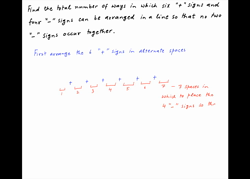 Find the total number of ways in which six "+" signs and
four "-" signs can be arranged in a line so that no two
"-" signs occur together.
First arrange the 6 "+" signs in alternate spaces
+ + + + + +
1 2 3 4 5 6 7 → 7 spaces in
which to place the
4 "-" signs so th